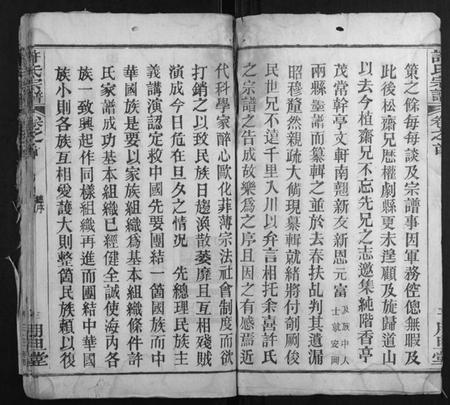 許氏宗譜
卷之首
策之餘每每談及宗譜事因軍務倥傯無暇及
此後松齋兄歷權劇縣更未遑顧及旋歸道山
以去今植齋兄不忘先兄之志邀集純階香亭
茂常幹亭文軒南翹新友新恩元富
及族中人
士就安岡
兩縣墨譜而纂輯之並於去春扶乩判其遺漏
昭穆釐然親疏大備現裒輯就緒將付剞劂俊
民世兄不遠千里入川以弁言相托余喜許氏
之宗譜之告成故樂爲之序且因之有感焉近
許氏宗譜
卷之首
代科學家醉心歐化菲薄宗法社會制度而欲
打銷之以致民族日趨渙散萎靡且互相殘賊
演成今日危在旦夕之情況 先總理民族主
義講演認定救中國先要團結一箇國族而中
華國族是要以家族組織爲基本組織條件許
氏家譜成功基本組織已經健全誠使海內各
族一致興起作同樣組織再進而團結中華國
族小則各族互相愛護大則整箇民族賴以復